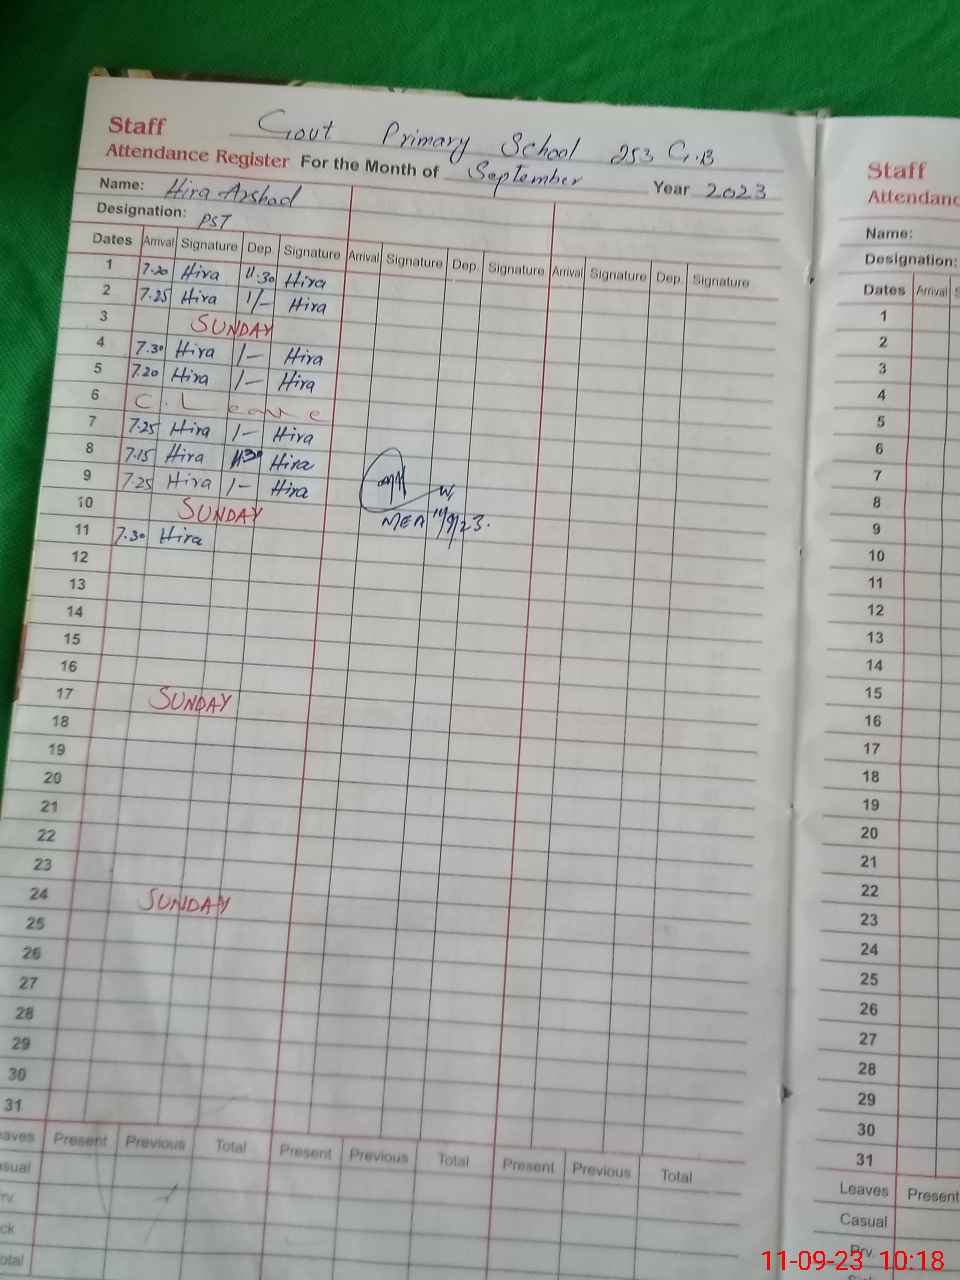 Staff Govt Primary School 253 G.B
Attendance Register For the Month of September Year 2023
Name: Hira Arshad
Designation: PST
Dates Arrival Signature Dep. Signature Arrival Signature Dep. Signature Arrival Signature Dep. Signature
1 7.20 Hira 11.30 Hira
2 7.25 Hira 1/- Hira
3 SUNDAY
4 7.30 Hira 1- Hira
5 7.20 Hira 1- Hira
6 C. Leave
7 7.25 Hira 1- Hira
8 7.15 Hira 11.30 Hira
9 7.25 Hira 1- Hira
10 SUNDAY
MEA 11/9/23.
11 7.30 Hira
12
13
14
15
16
17 SUNDAY
18
19
20
21
22
23
24 SUNDAY
25
26
27
28
29
30
31
eaves Present Previous Total Present Previous Total Present Previous Total
asual
rv.
ck
otal
Staff
Attendanc
Name:
Designation:
Dates Arrival S
1
2
3
4
5
6
7
8
9
10
11
12
13
14
15
16
17
18
19
20
21
22
23
24
25
26
27
28
29
30
31
Leaves Present
Casual
Prv.
11-09-23 10:18